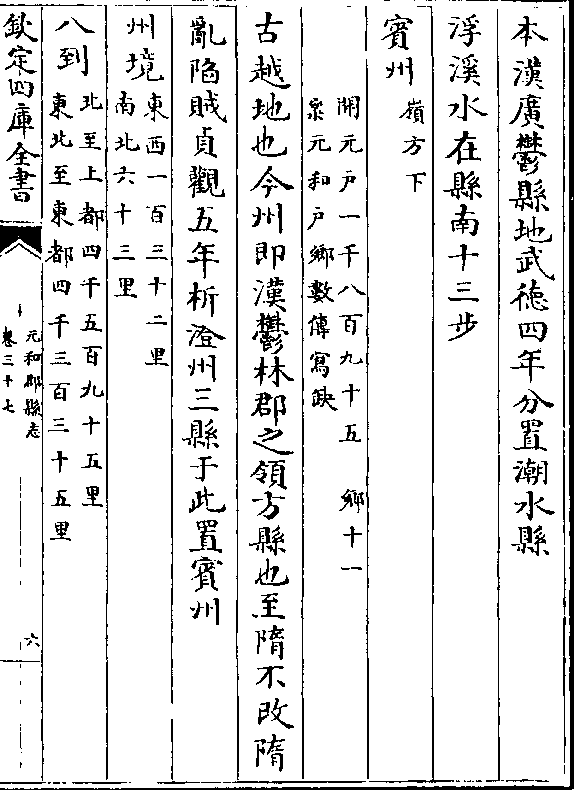 本漢廣鬱縣地武徳四年分置潮水縣
浮溪水在縣南十三步
賓州
嶺方下
開元戸一千八百九十五 鄉十一
案元和戸鄉數傳寫缺
古越地也今州即漢鬱林郡之領方縣也至隋不改隋
亂陷賊貞觀五年析澄州三縣于此置賓州
州境
東西一百三十二里
南北六十三里
八到
北至上都四千五百九十五里
東北至東都四千三百三十五里
欽定四庫全書
元和郡縣志
卷三十七
六